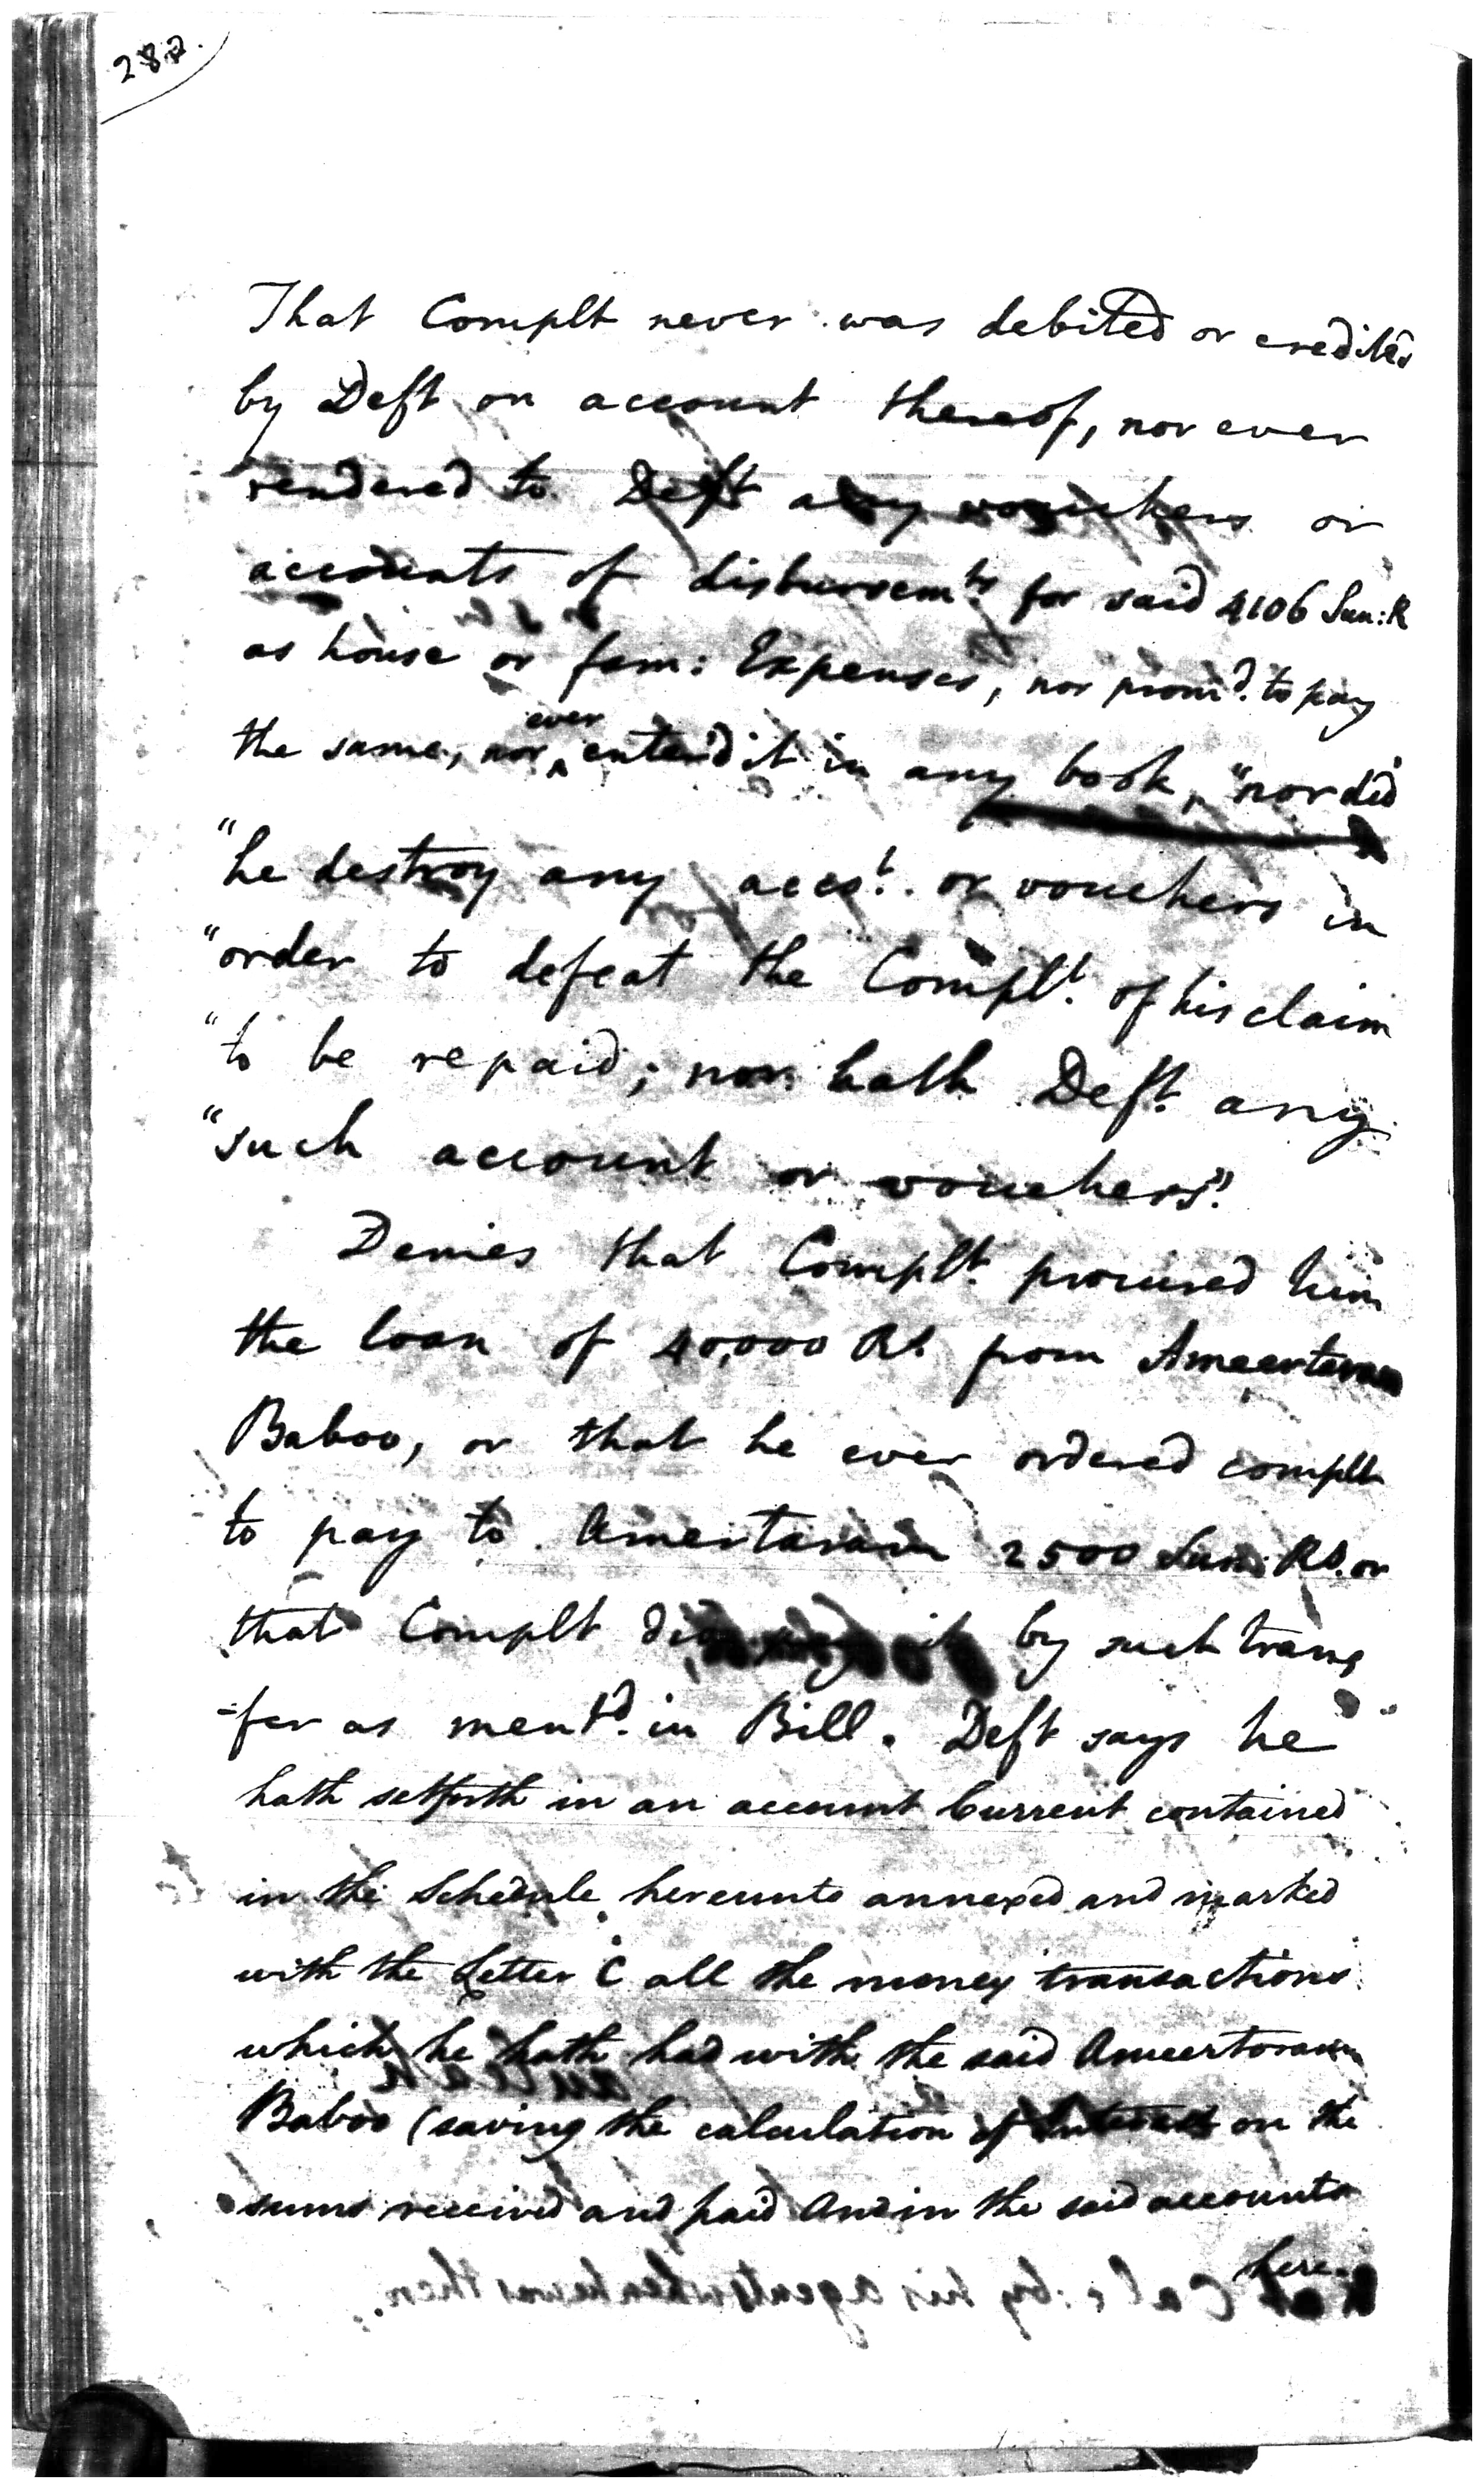 282.
That Complt never was debited or credited
by Deft on account thereof, nor ever
rendered to Deft any vouchers or
accounts of disbursemts for said 4106 Sun: R
as house or fam: Expenses, nor promd. to pay
the same, nor ever enter'd it in any book, "nor did
"he destroy any acct. or vouchers in
"order to defeat the Complt. of his claim
"to be repaid; nor hath Deft. any
"such account or vouchers".
Denies that Complt. procured him
the loan of 40,000 Rs. from
Baboo, or that he ever ordered complt
to pay to Amertaram 2500 Sun: Rs. or
that Complt did pay it by such trans
-fer as mentd. in Bill. Deft says he
hath setforth in an account Current contained
in the Schedule hereunto annexed and marked
with the Letter C all the money transactions
which he hath had with the said Ameertoram
Baboo (saving the calculation of Interest on the
sums received and paid and in the said accounts
here